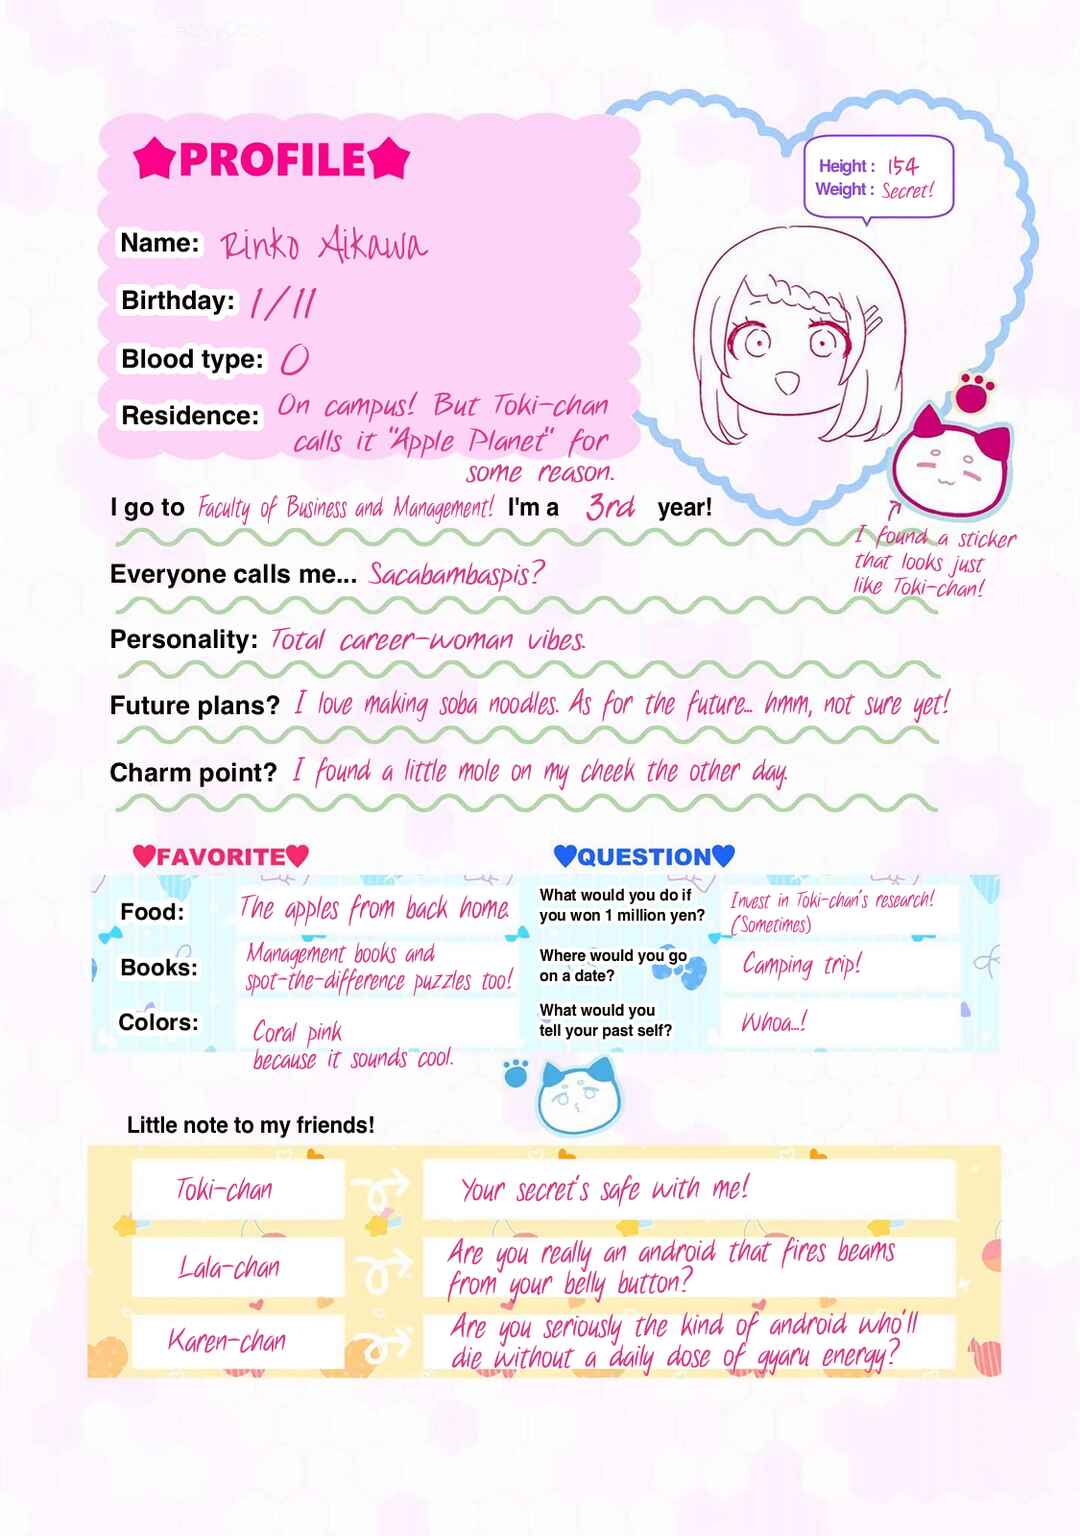 ★PROFILE★
Height : 154
Weight : Secret!
Name: Rinko Aikawa
Birthday: 1/11
Blood type: O
Residence: On campus! But Toki-chan
calls it "Apple Planet" for
some reason.
I go to Faculty of Business and Management! I'm a 3rd year!
I found a sticker
that looks just
like Toki-chan!
Everyone calls me... Sacabambaspis?
Personality: Total career-woman vibes.
Future plans? I love making soba noodles. As for the future... hmm, not sure yet!
Charm point? I found a little mole on my cheek the other day.
♥FAVORITE♥
Food: The apples from back home.
Books: Management books and
spot-the-difference puzzles too!
Colors: Coral pink
because it sounds cool.
♥QUESTION♥
What would you do if
you won 1 million yen?
Invest in Toki-chan's research!
(Sometimes)
Where would you go
on a date?
Camping trip!
What would you
tell your past self?
Whoa...!
Little note to my friends!
Toki-chan
Your secret's safe with me!
Lala-chan
Are you really an android that fires beams
from your belly button?
Karen-chan
Are you seriously the kind of android who'll
die without a daily dose of gyaru energy?